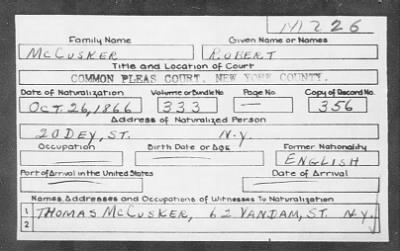 M 226
Family Name Given Name or Names
McCusker Robert
Title and Location of Court
COMMON PLEAS COURT, NEW YORK COUNTY.
Date of Naturalization Volume or Bundle No Page No. Copy of Record No.
Oct. 26, 1866 333 — 356
Address of Naturalized Person
20 Dey, St. N.Y.
Occupation Birth Date or Age Former Nationality
— — English
Port of Arrival in the United States Date of Arrival
— —
Names, Addresses and Occupations of Witnesses To Naturalization
1 Thomas McCusker, 62 Vandam, St. N.Y.
2